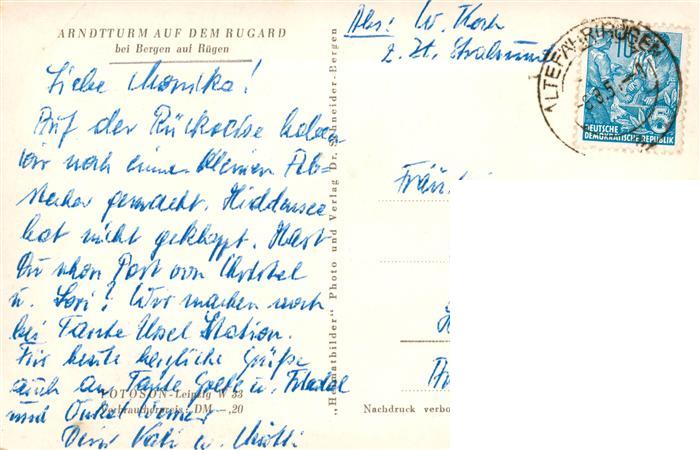 ARNDTTURM AUF DEM RUGARD
bei Bergen auf Rügen
Abs: W. Koch
z. Zt. Stralsund
ALTEFÄHR (RÜGEN)
10
5
DEUTSCHE
DEMOKRATISCHE REPUBLIK
Liebe Monika!
Auf der Rückreise haben
wir noch einen kleinen Ab-
stecher gemacht. Hiddensee
hat nicht geklappt. Hast
Du schon Post von Christel
u. Lori? Wir machen noch
bei Tante Ursel Station.
Für heute herzliche Grüße
auch an Tante Grete u.
und Onkel
Dein Vati u. Mutti
FOTOSON-Leipzig W 33
Verbraucherpreis: DM —,20
„Heimatbilder" Photo und Verlag Dr. Schneider-Bergen
Fräulein
Nachdruck verbo